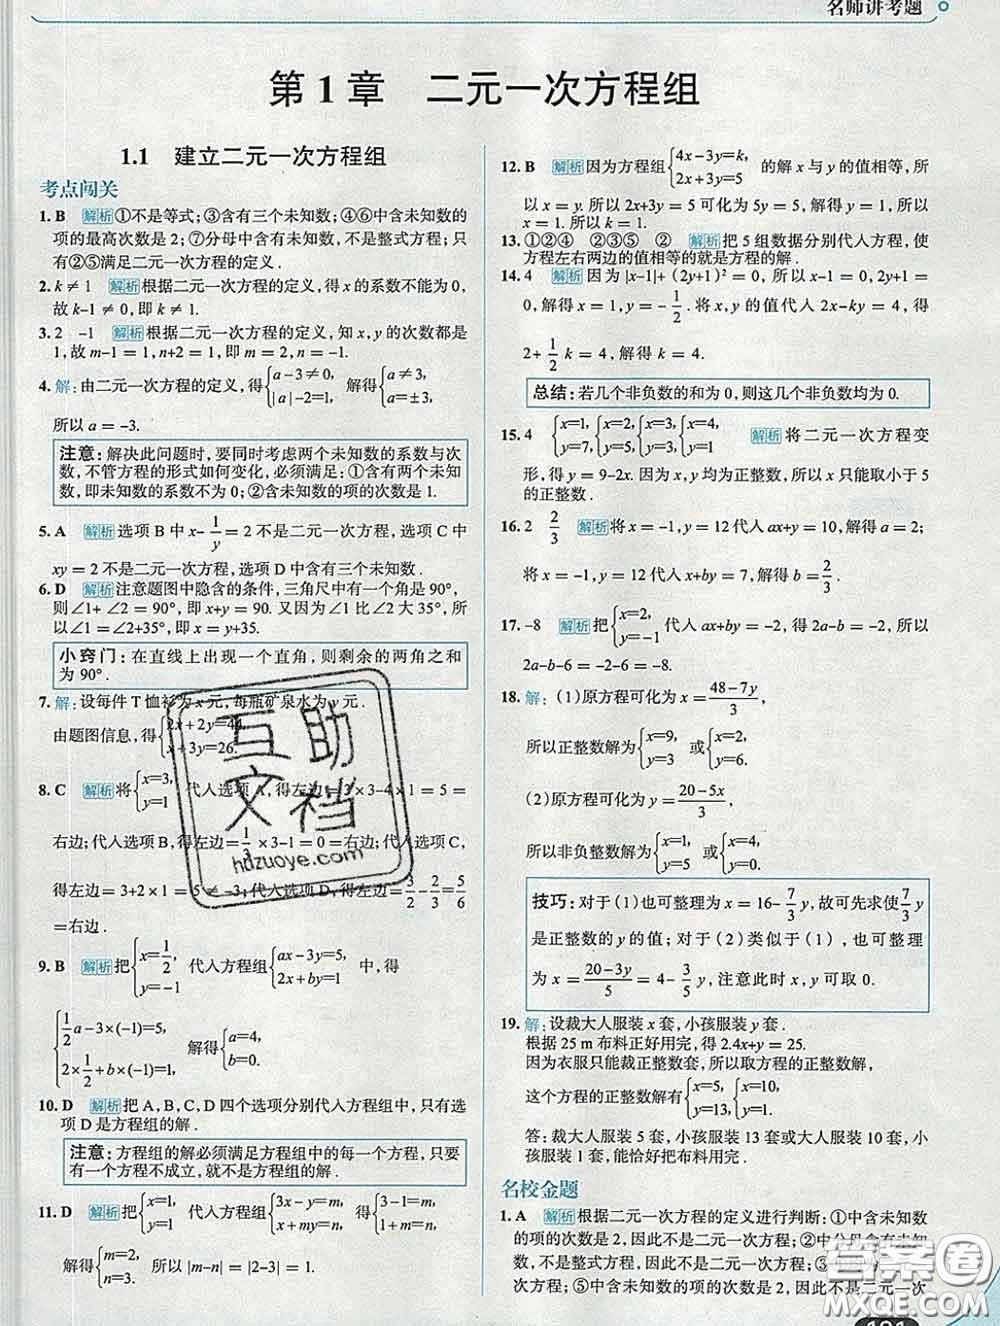 名师讲考题
第1章 二元一次方程组
1.1 建立二元一次方程组
考点闯关
1. B 解析 ①不是等式；③含有三个未知数；④⑥中含未知数的
项的最高次数是2；⑦分母中含有未知数，不是整式方程；只
有②⑤满足二元一次方程的定义．
2. k≠1 解析 根据二元一次方程的定义，得x的系数不能为0，
故k-1≠0，即k≠1.
3. 2 -1 解析 根据二元一次方程的定义，知x，y的次数都是
1，故m-1=1，n+2=1，即m=2，n=-1.
4. 解：由二元一次方程的定义，得{a-3≠0，|a|-2=1. 解得{a≠3，a=±3，
所以a=-3.
注意：解决此问题时，要同时考虑两个未知数的系数与次
数，不管方程的形式如何变化，必须满足：①含有两个未知
数，即未知数的系数不为0；②含未知数的项的次数是1.
5. A 解析 选项B中x-1/y=2不是二元一次方程，选项C中
xy=2不是二元一次方程，选项D中含有三个未知数．
6. D 解析 注意题图中隐含的条件，三角尺中有一个角是90°，
则∠1+∠2=90°，即x+y=90. 又因为∠1比∠2大35°，所
以∠1=∠2+35°，即x=y+35.
小窍门：在直线上出现一个直角，则剩余的两角之和
为90°．
7. 解：设每件T恤衫为x元，每瓶矿泉水为y元．
由题图信息，得{2x+2y=44，x+3y=26.
8. C 解析 将{x=3，y=1 代入选项A，得左边=3×3-4×1=5=
右边；代入选项B，得左边=1/3×3-1=0=右边；代入选项C，
得左边=3+2×1=5≠-3；代入选项D，得左边=3/2-2/3=5/6
=右边．
9. B 解析 把{x=1/2，y=-1 代入方程组{ax-3y=5，2x+by=1 中，得
{1/2a-3×(-1)=5，2×1/2+b×(-1)=1， 解得{a=4，b=0.
10. D 解析 把A，B，C，D四个选项分别代入方程组中，只有选
项D是方程组的解．
注意：方程组的解必须满足方程组中的每一个方程，只要
有一个方程不成立，就不是方程组的解．
11. D 解析 把{x=1，y=1 代入方程组{3x-y=m，x+my=n， 得{3-1=m，1+m=n，
解得{m=2，n=3. 所以|m-n|=|2-3|=1.
12. B 解析 因为方程组{4x-3y=k，2x+3y=5 的解x与y的值相等，所
以x=y. 所以2x+3y=5可化为5y=5，解得y=1. 所以
x=1. 所以k=1.
13. ①②④ ②③⑤ ② 解析 把5组数据分别代入方程，使
方程左右两边的值相等的就是方程的解．
14. 4 解析 因为|x-1|+(2y+1)²=0，所以x-1=0，2y+1=
0，解得x=1，y=-1/2. 将x，y的值代入2x-ky=4，得
2+1/2k=4，解得k=4.
总结：若几个非负数的和为0，则这几个非负数均为0.
15. 4 {x=1，y=7，{x=2，y=5，{x=3，y=3，{x=4，y=1 解析 将二元一次方程变
形，得y=9-2x. 因为x，y均为正整数，所以x只能取小于5
的正整数．
16. 2 2/3 解析 将x=-1，y=12代入ax+y=10，解得a=2；
将x=-1，y=12代入x+by=7，解得b=2/3.
17. -8 解析 把{x=2，y=-1 代入ax+by=-2，得2a-b=-2. 所以
2a-b-6=-2-6=-8.
18. 解：(1)原方程可化为x=(48-7y)/3，
所以正整数解为{x=9，y=3 或{x=2，y=6.
(2)原方程可化为y=(20-5x)/3，
所以非负整数解为{x=1，y=5 或{x=4，y=0.
技巧：对于(1)也可整理为x=16-7/3y，故可先求使7/3y
是正整数的y的值；对于(2)类似于(1)，也可整理
为x=(20-3y)/5=4-3/5y，注意此时x，y可取0.
19. 解：设裁大人服装x套，小孩服装y套．
根据25 m布料正好用完，得2.4x+y=25.
因为衣服只能裁正整数套，所以取方程的正整数解，
这个方程的解有{x=5，y=13，{x=10，y=1.
答：裁大人服装5套，小孩服装13套或大人服装10套，小孩
服装1套，能恰好把布料用完．
名校金题
1. A 解析 根据二元一次方程的定义进行判断：①中含未知数
的项的次数是2，因此不是二元一次方程；②中分母含有未知
数，不是整式方程，因此不是二元一次方程；③
次方程；⑤中含未知数的项的次数是2，因此不是二元一次
互助文档
hdzuoye.com
答案圈
MXQE.COM